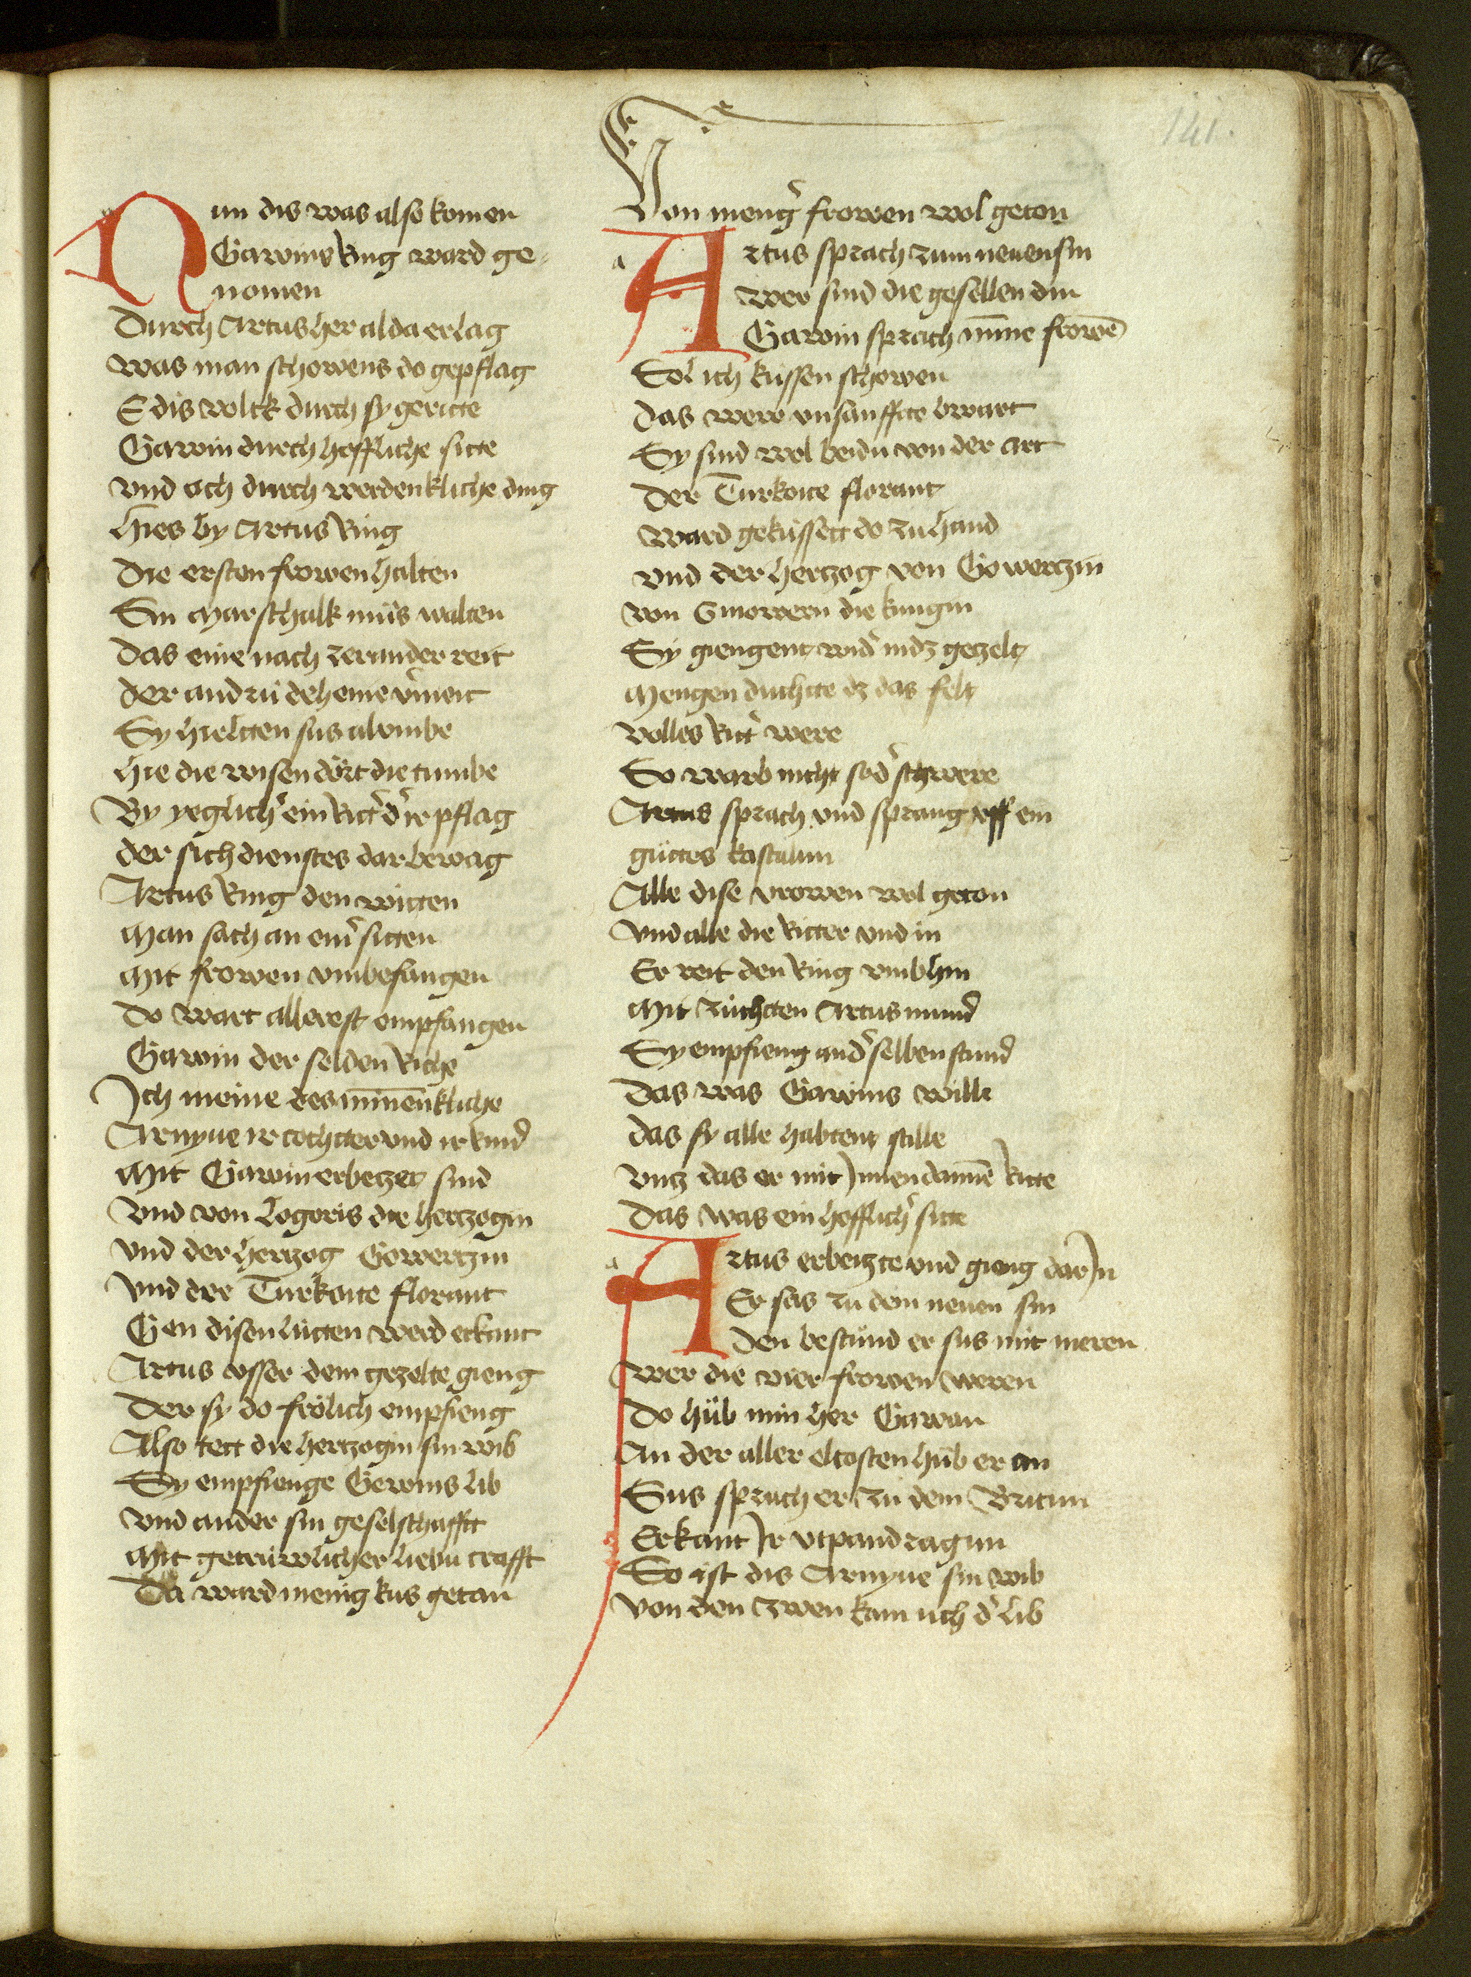 141.
Nun dis was also komen
Gawins Ring ward ge-
nomen
Durch Artus her alda erlag
Was man schowens do gepflag
E dis volck durch sy geritte
Gawin durch hoffliche sitte
Vnd och durch werdenkliche ding
Hies by Artus Ring
Die ersten frowen halten
Sin marschalk mu̇s walten
Das eine nach zerander reit
Der andrú deheine v̾meit
Sy hieltten sus al vmbe
Hie die wisen dört die tumbe
By yeglich̾ ein Ritt̾ d̾ ir pflag
Der sich dienstes dar bewag
Artus Ring den witten
Man sach an ein̾ sitten
Mit frowen vmbefangen
Do wart allerest empfangen
Gawin der selden Riche
Ich meine des mīnenkliche
Arnyue ir tochtter vnd ir kind̾
Mit Gawin erbetzet sind
Vnd von Logoris die hertzogin
Vnd der hertzog Gowertzin
Vnd der Turkoite florant
Gen disen lútten werd erkant
Artus vsser dem gezelte gieng
Der sy do frölich empfieng
Also tett die hertzogin sin wib
Sy empfienge Gewins lib
Vnd ander sin geselschafft
Mit getrúwlicher liebu crafft
Da ward menig kus getan
Von meng̾ frowen wol geton
Artus sprach zum neuen sin
Wer sind die gesellen din
Gawin sprach mine frowē
Sol ich kussen schowen
Das were vnsanffte bewart
Sy sind wol beidu von der art
Der Turkoite florant
Ward gekússett do zu hand
Vnd der hertzog von Gowertzin
Von Ginowern die kungin
Sy giengent wid̾ in dz gezelt
Mengen duchtte dz das felt
Volles Ritt̾ were
So warb nicht so d̾ schwere
Artus sprach vnd sprang vff ein
gúttes kastalun
Alle dise vrowen wol geton
Vnd alle die Ritter vnd in
Er reit den Ring vmbhin
Mit zúchtten Artus mund̾
Sy empfieng an d̾ selben stund̾
Das was Gawins wille
Das sy alle habtent stille
Vntz das er mit Innen dannē Ritte
Das was ein hefflich̾ sitte
Artus erbeitzte vnd gieng dar In
Er sas zu dem neuen sin
Den bestu̇nd er sus mit meren
Wer die vier frowen weren
Do hu̇b min her Gawan
An der aller eltosten hu̇b er an
Sus sprach er zu dem Britun
Erkant Ir vtpandragun
So ist dis Arnyue sin wib
Von den zwen kam uch d̾ lib